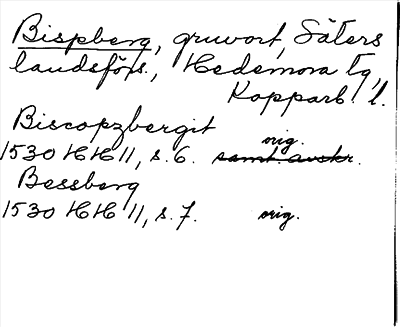 Bispberg, gruvort, Säters
landsförs., Hedemora tg,
Kopparb. l.
Biscopzbergit
orig.
1530 HH 11, s. 6. samt. avskr.
Bessberg
1530 HH 11, s. 7. orig.